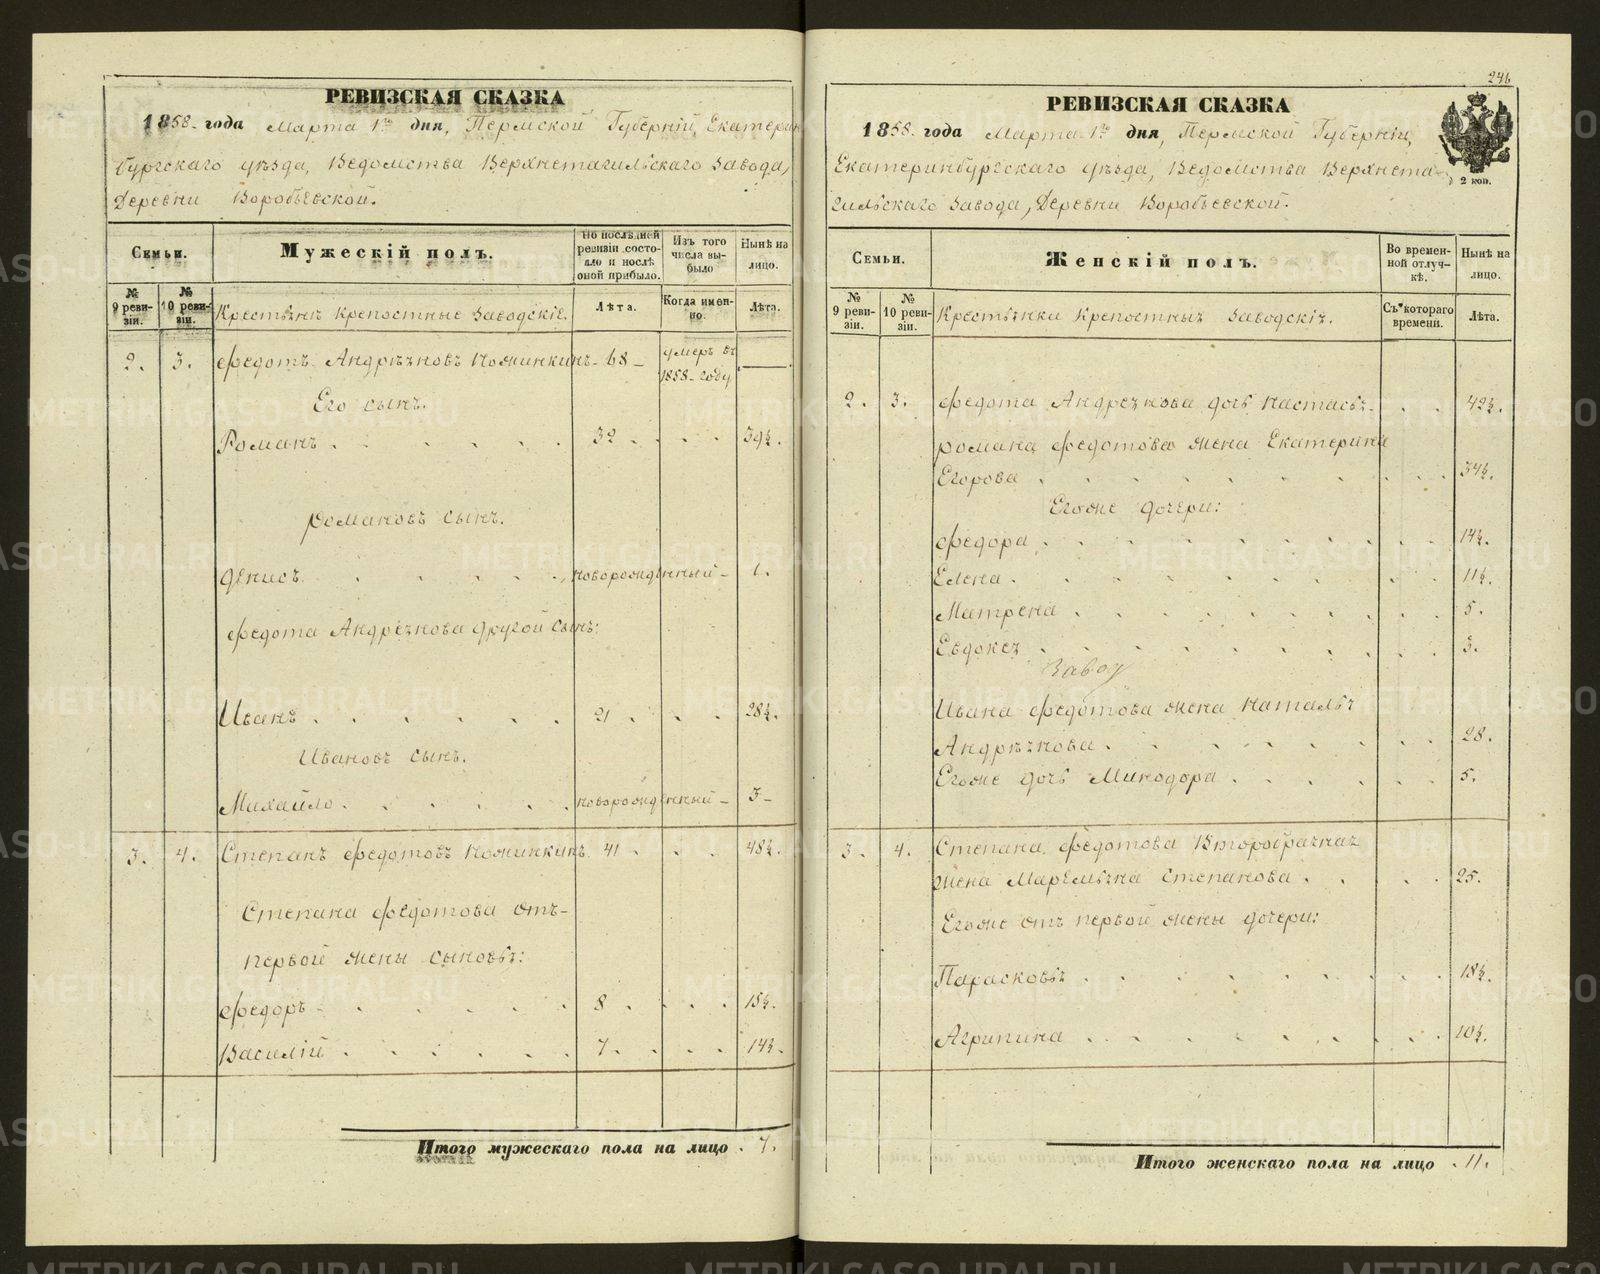 РЕВИЗСКАЯ СКАЗКА
1858 года Марта 1го дня, Пермской Губерніи, Екатерин
бургскаго уѣзда, Ведомства Верхнетагильскаго Завода,
Деревни Воробьевской.
Семьи.
Мужескій полъ.
По послѣдней ревизіи состояло и послѣ оной прибыло.
Изъ того числа выбыло
Нынѣ на лицо.
№ 9 ревизіи.
№ 10 ревизіи.
Крестьянъ крепостные Заводскіе.
Лѣта.
Когда именно.
Лѣта.
2. 3. Федотъ Андрѣяновъ 68 умеръ въ 1858 году
Его сынъ.
Романъ 32 39½.
Романовъ сынъ.
Денисъ новорожденный 1.
Федота Андреянова другой сынъ:
Иванъ 21 28½.
Ивановъ сынъ.
Михайло новорожденный 3
3. 4. Степанъ Федотовъ 41 48½.
Степана Федотова отъ
первой жены сыновья:
Федоръ 8 15½.
Василій 7. 14½.
Итого мужескаго пола на лицо 7.
246
РЕВИЗСКАЯ СКАЗКА
1858. года Марта 1го дня, Пермской Губерніи,
Екатеринбургскаго уѣзда, Ведомства Верхнета-
гильскаго Завода, Деревни Воробьевской.
2 коп.
Семьи.
Женскій полъ.
Во временной отлучкѣ.
Нынѣ на лицо.
№ 9 ревизіи.
№ 10 ревизіи.
Крестьянки крепостныя Заводскія.
Съ котораго времени.
Лѣта.
2. 3. Федота Андреянова дочь Настасья 42½.
Романа Федотова жена Екатерина
Егорова 34½.
Егоже дочери:
Федора 14½.
Елена 11½.
Матрена 5.
Евдокея 3.
Завод
Ивана Федотова жена Наталья
Андрѣянова 28.
Егоже дочь Минодора 5.
3. 4. Степана Федотова Второбрачная
жена Маремьяна Степанова 25.
Егоже отъ первой жены дочери:
Парасковья 18½.
Агрипина 10½.
Итого женскаго пола на лицо 11.
METRIKI.GASO-URAL.RU